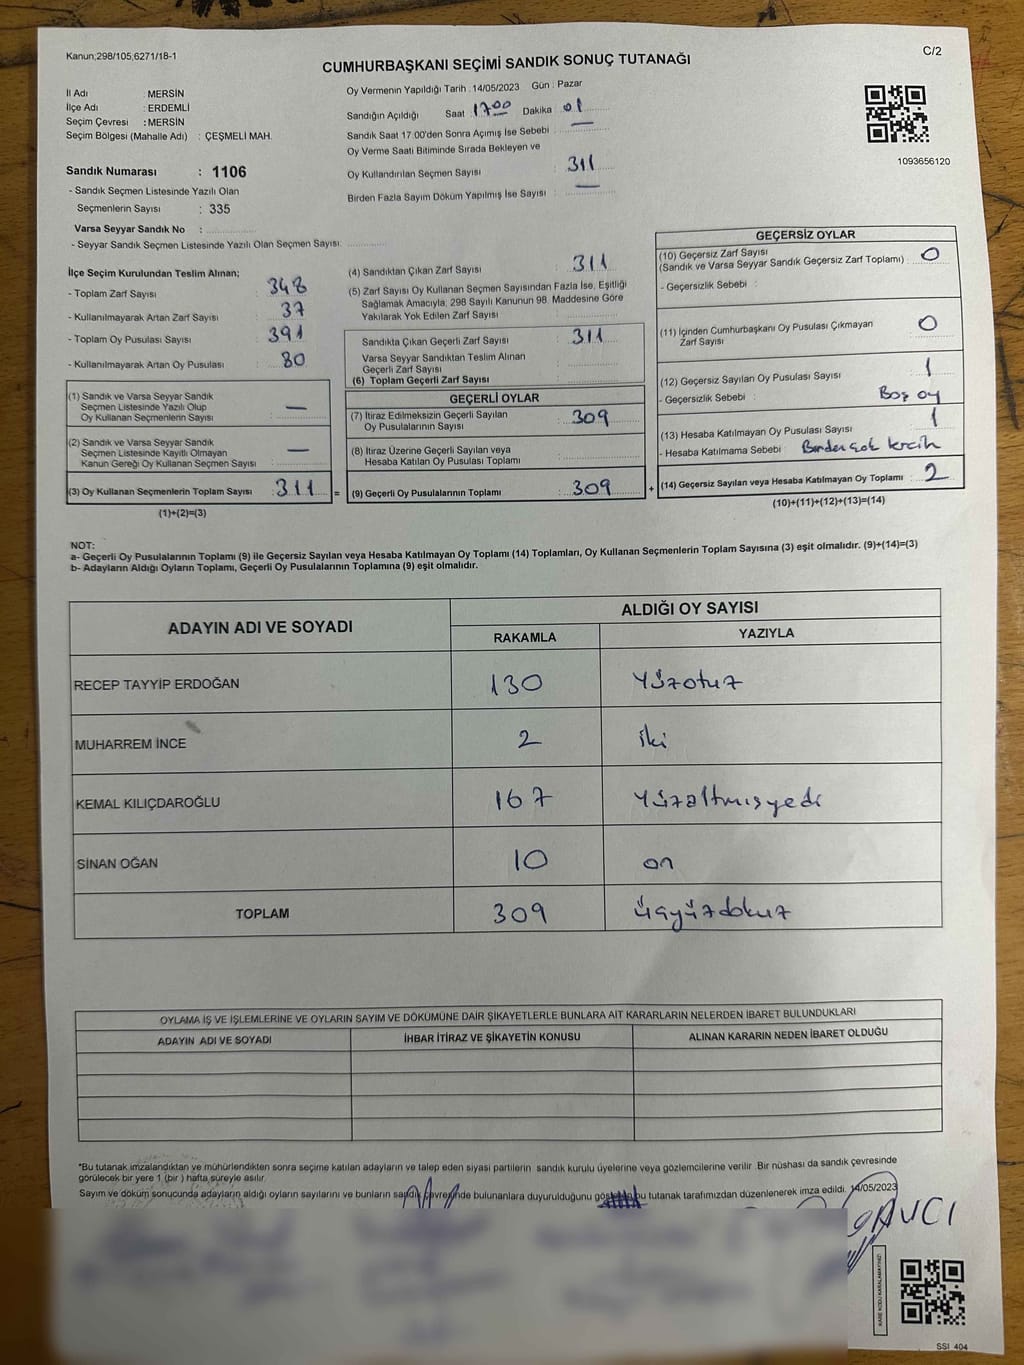 Kanun;298/105;6271/18-1
C/2
CUMHURBAŞKANI SEÇİMİ SANDIK SONUÇ TUTANAĞI
İl Adı : MERSİN
İlçe Adı : ERDEMLİ
Seçim Çevresi : MERSİN
Seçim Bölgesi (Mahalle Adı) : ÇEŞMELİ MAH.
Oy Vermenin Yapıldığı Tarih : 14/05/2023 Gün : Pazar
Sandığın Açıldığı Saat : 17 00 Dakika : 01
Sandık Saat 17:00'den Sonra Açımış İse Sebebi : —
Oy Verme Saati Bitiminde Sırada Bekleyen ve
Oy Kullandırılan Seçmen Sayısı : 311
Birden Fazla Sayım Döküm Yapılmış İse Sayısı : —
1093656120
Sandık Numarası : 1106
- Sandık Seçmen Listesinde Yazılı Olan
Seçmenlerin Sayısı : 335
Varsa Seyyar Sandık No :
- Seyyar Sandık Seçmen Listesinde Yazılı Olan Seçmen Sayısı:
İlçe Seçim Kurulundan Teslim Alınan;
- Toplam Zarf Sayısı : 348
- Kullanılmayarak Artan Zarf Sayısı : 37
- Toplam Oy Pusulası Sayısı : 391
- Kullanılmayarak Artan Oy Pusulası : 80
(1) Sandık ve Varsa Seyyar Sandık
Seçmen Listesinde Yazılı Olup
Oy Kullanan Seçmenlerin Sayısı : —
(2) Sandık ve Varsa Seyyar Sandık
Seçmen Listesinde Kayıtlı Olmayan
Kanun Gereği Oy Kullanan Seçmen Sayısı : —
(3) Oy Kullanan Seçmenlerin Toplam Sayısı : 311 =
(1)+(2)=(3)
(4) Sandıktan Çıkan Zarf Sayısı : 311
(5) Zarf Sayısı Oy Kullanan Seçmen Sayısından Fazla İse, Eşitliği
Sağlamak Amacıyla, 298 Sayılı Kanunun 98. Maddesine Göre
Yakılarak Yok Edilen Zarf Sayısı :
Sandıkta Çıkan Geçerli Zarf Sayısı : 311
Varsa Seyyar Sandıktan Teslim Alınan
Geçerli Zarf Sayısı :
(6) Toplam Geçerli Zarf Sayısı :
GEÇERLİ OYLAR
(7) İtiraz Edilmeksizin Geçerli Sayılan
Oy Pusulalarının Sayısı : 309
(8) İtiraz Üzerine Geçerli Sayılan veya
Hesaba Katılan Oy Pusulası Toplamı :
(9) Geçerli Oy Pusulalarının Toplamı : 309 +
GEÇERSİZ OYLAR
(10) Geçersiz Zarf Sayısı
(Sandık ve Varsa Seyyar Sandık Geçersiz Zarf Toplamı) : 0
- Geçersizlik Sebebi :
(11) İçinden Cumhurbaşkanı Oy Pusulası Çıkmayan
Zarf Sayısı : 0
(12) Geçersiz Sayılan Oy Pusulası Sayısı : 1
- Geçersizlik Sebebi : Boş oy
(13) Hesaba Katılmayan Oy Pusulası Sayısı : 1
- Hesaba Katılmama Sebebi : Birden çok tercih
(14) Geçersiz Sayılan veya Hesaba Katılmayan Oy Toplamı : 2
(10)+(11)+(12)+(13)=(14)
NOT:
a- Geçerli Oy Pusulalarının Toplamı (9) ile Geçersiz Sayılan veya Hesaba Katılmayan Oy Toplamı (14) Toplamları, Oy Kullanan Seçmenlerin Toplam Sayısına (3) eşit olmalıdır. (9)+(14)=(3)
b- Adayların Aldığı Oyların Toplamı, Geçerli Oy Pusulalarının Toplamına (9) eşit olmalıdır.
ADAYIN ADI VE SOYADI
ALDIĞI OY SAYISI
RAKAMLA YAZIYLA
RECEP TAYYİP ERDOĞAN 130 Yüzotuz
MUHARREM İNCE 2 iki
KEMAL KILIÇDAROĞLU 167 Yüzaltmışyedi
SİNAN OĞAN 10 on
TOPLAM 309 üçyüzdokuz
OYLAMA İŞ VE İŞLEMLERİNE VE OYLARIN SAYIM VE DÖKÜMÜNE DAİR ŞİKAYETLERLE BUNLARA AİT KARARLARIN NELERDEN İBARET BULUNDUKLARI
ADAYIN ADI VE SOYADI İHBAR İTİRAZ VE ŞİKAYETİN KONUSU ALINAN KARARIN NEDEN İBARET OLDUĞU
*Bu tutanak imzalandıktan ve mühürlendikten sonra seçime katılan adayların ve talep eden siyasi partilerin sandık kurulu üyelerine veya gözlemcilerine verilir. Bir nüshası da sandık çevresinde
görülecek bir yere 1 (bir) hafta süreyle asılır.
Sayım ve döküm sonucunda adayların aldığı oyların sayılarını ve bunların sandık çevresinde bulunanlara duyurulduğunu bu tutanak tarafımızdan düzenlenerek imza edildi. 14/05/2023
AVCI
KARE KODU KARALAMAYINIZ!
SSI 404